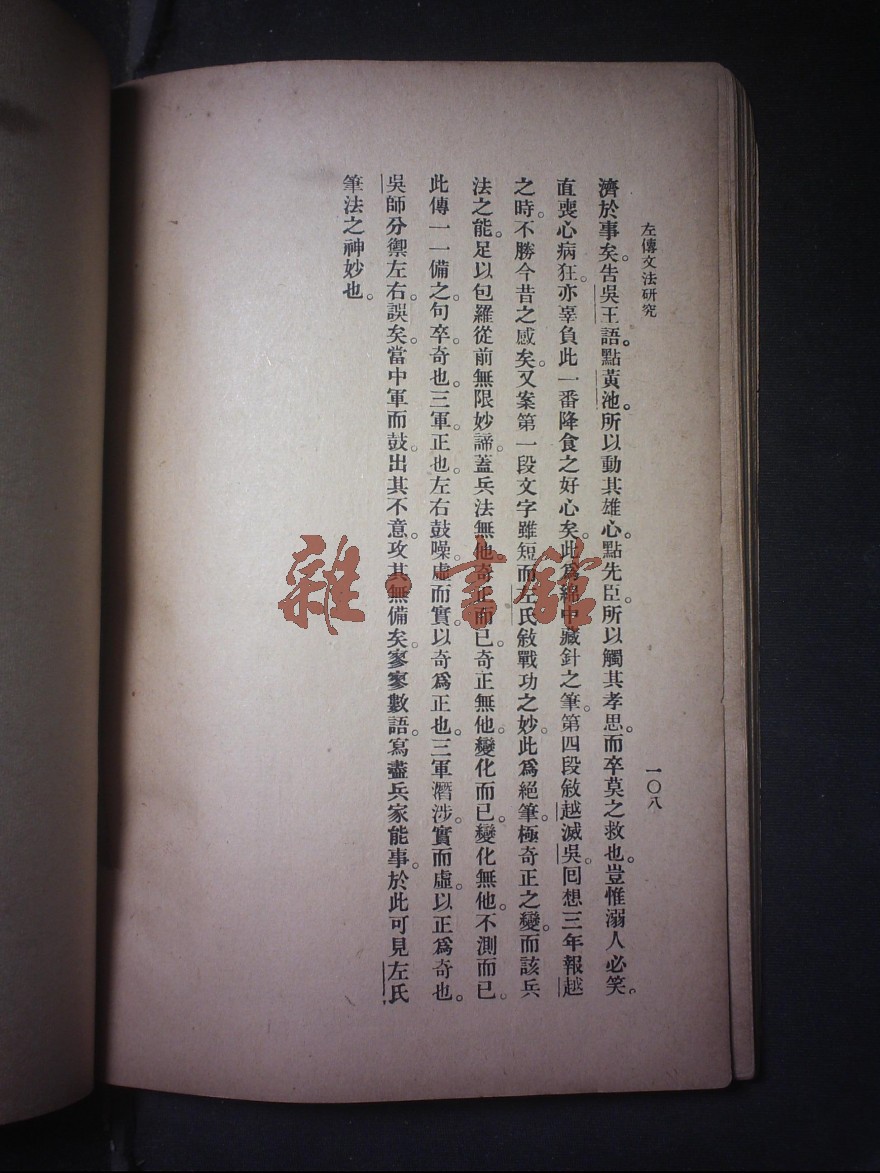 左傳文法研究
一〇八
濟於事矣。告吳王語。點黃池。所以動其雄心。點先臣。所以觸其孝思。而卒莫之救也。豈惟溺人必笑。
直喪心病狂。亦辜負此一番降食之好心矣。此爲綿中藏針之筆。第四段敍越滅吳。回想三年報越
之時。不勝今昔之感矣。又案第一段文字雖短。而左氏敍戰功之妙。此爲絕筆。極奇正之變。而該兵
法之能。足以包羅從前無限妙諦。蓋兵法無他。奇正而已。奇正無他。變化而已。變化無他。不測而已。
此傳一一備之。句卒。奇也。三軍。正也。左右鼓噪。虛而實。以奇爲正也。三軍潛涉。實而虛。以正爲奇也。
吳師分禦左右。誤矣。當中軍而鼓。出其不意。攻其無備矣。寥寥數語。寫盡兵家能事。於此可見左氏
筆法之神妙也。
雜·書館